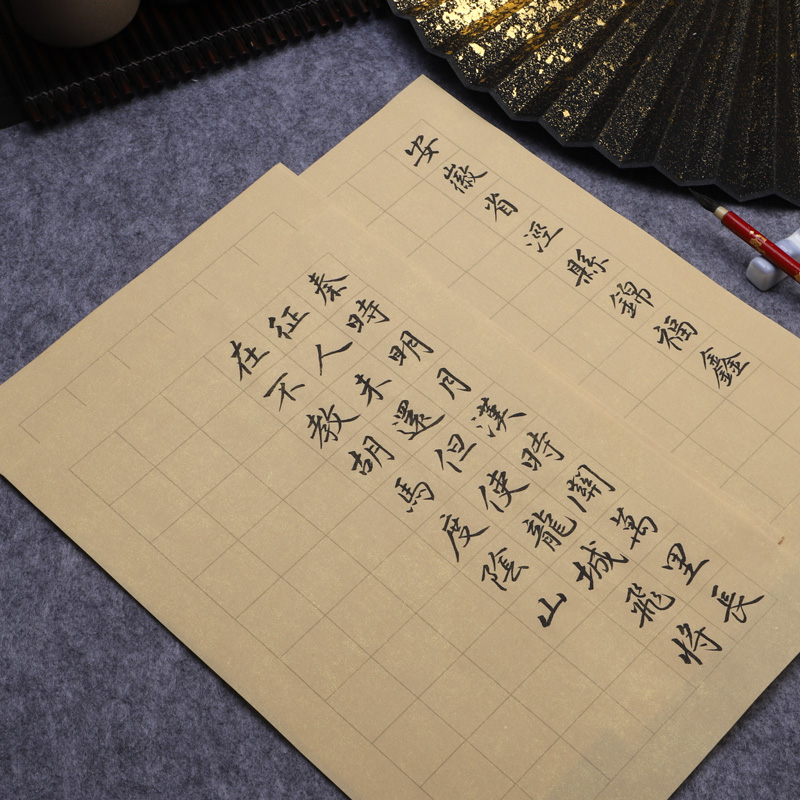 安徽省涇縣錦福鑫
秦時明月漢時關萬里長
征人未還但使龍城飛將
在不教胡馬度陰山